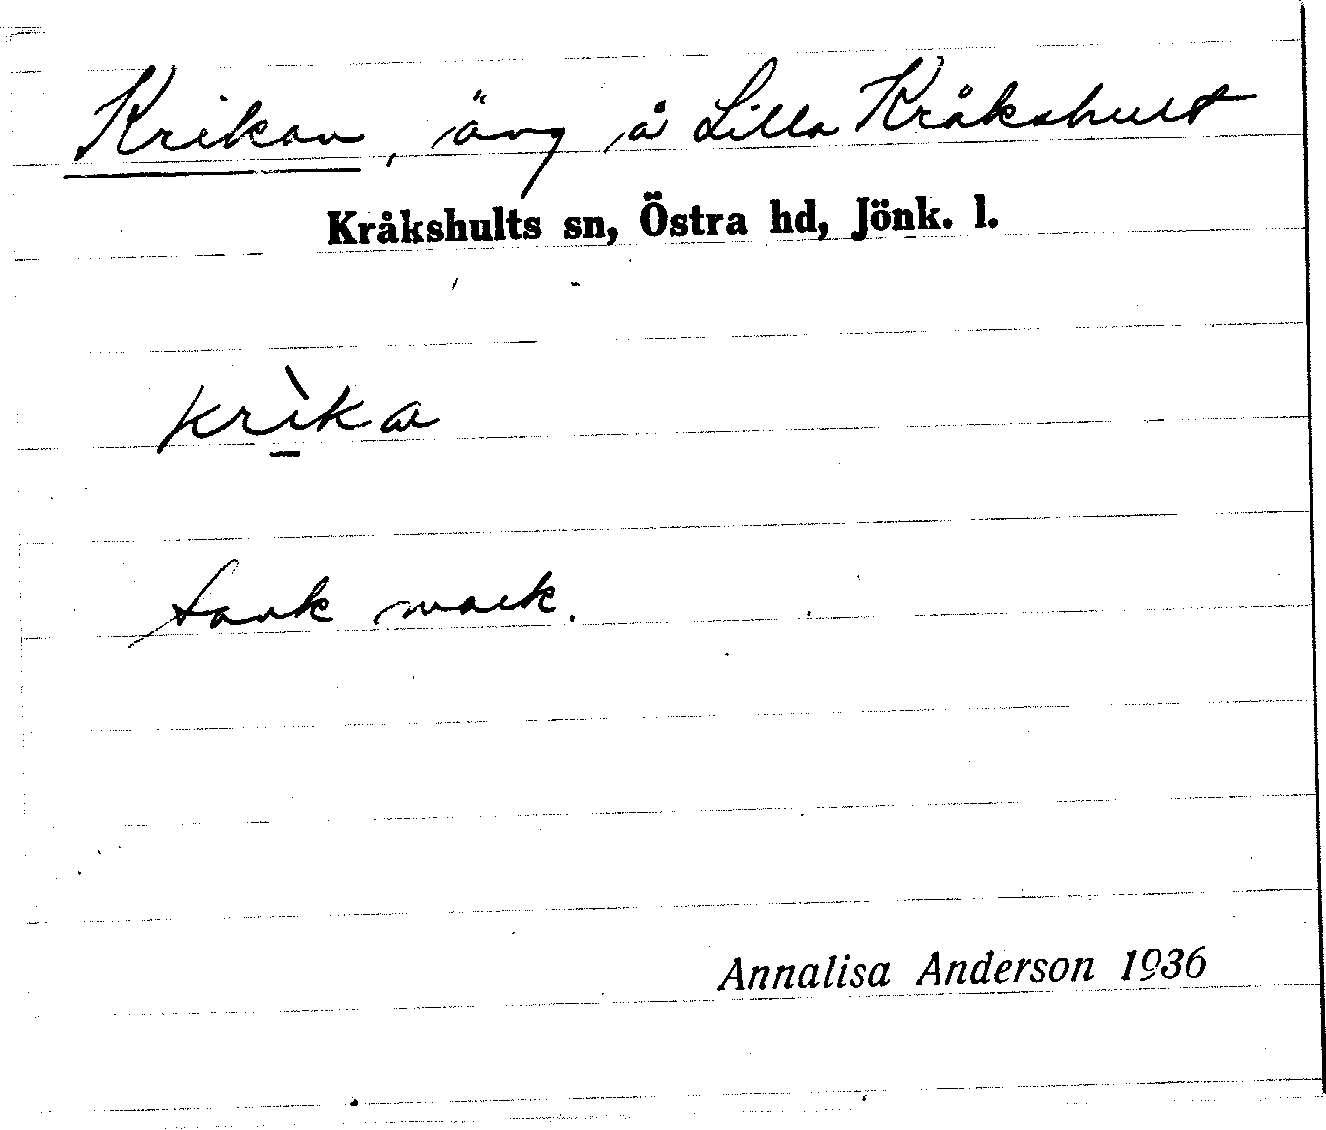 Krikan, äng å Lilla Kråkshult
Kråkshults sn, Östra hd, Jönk. l.
krı̀ka
Sank mark.
Annalisa Anderson 1936